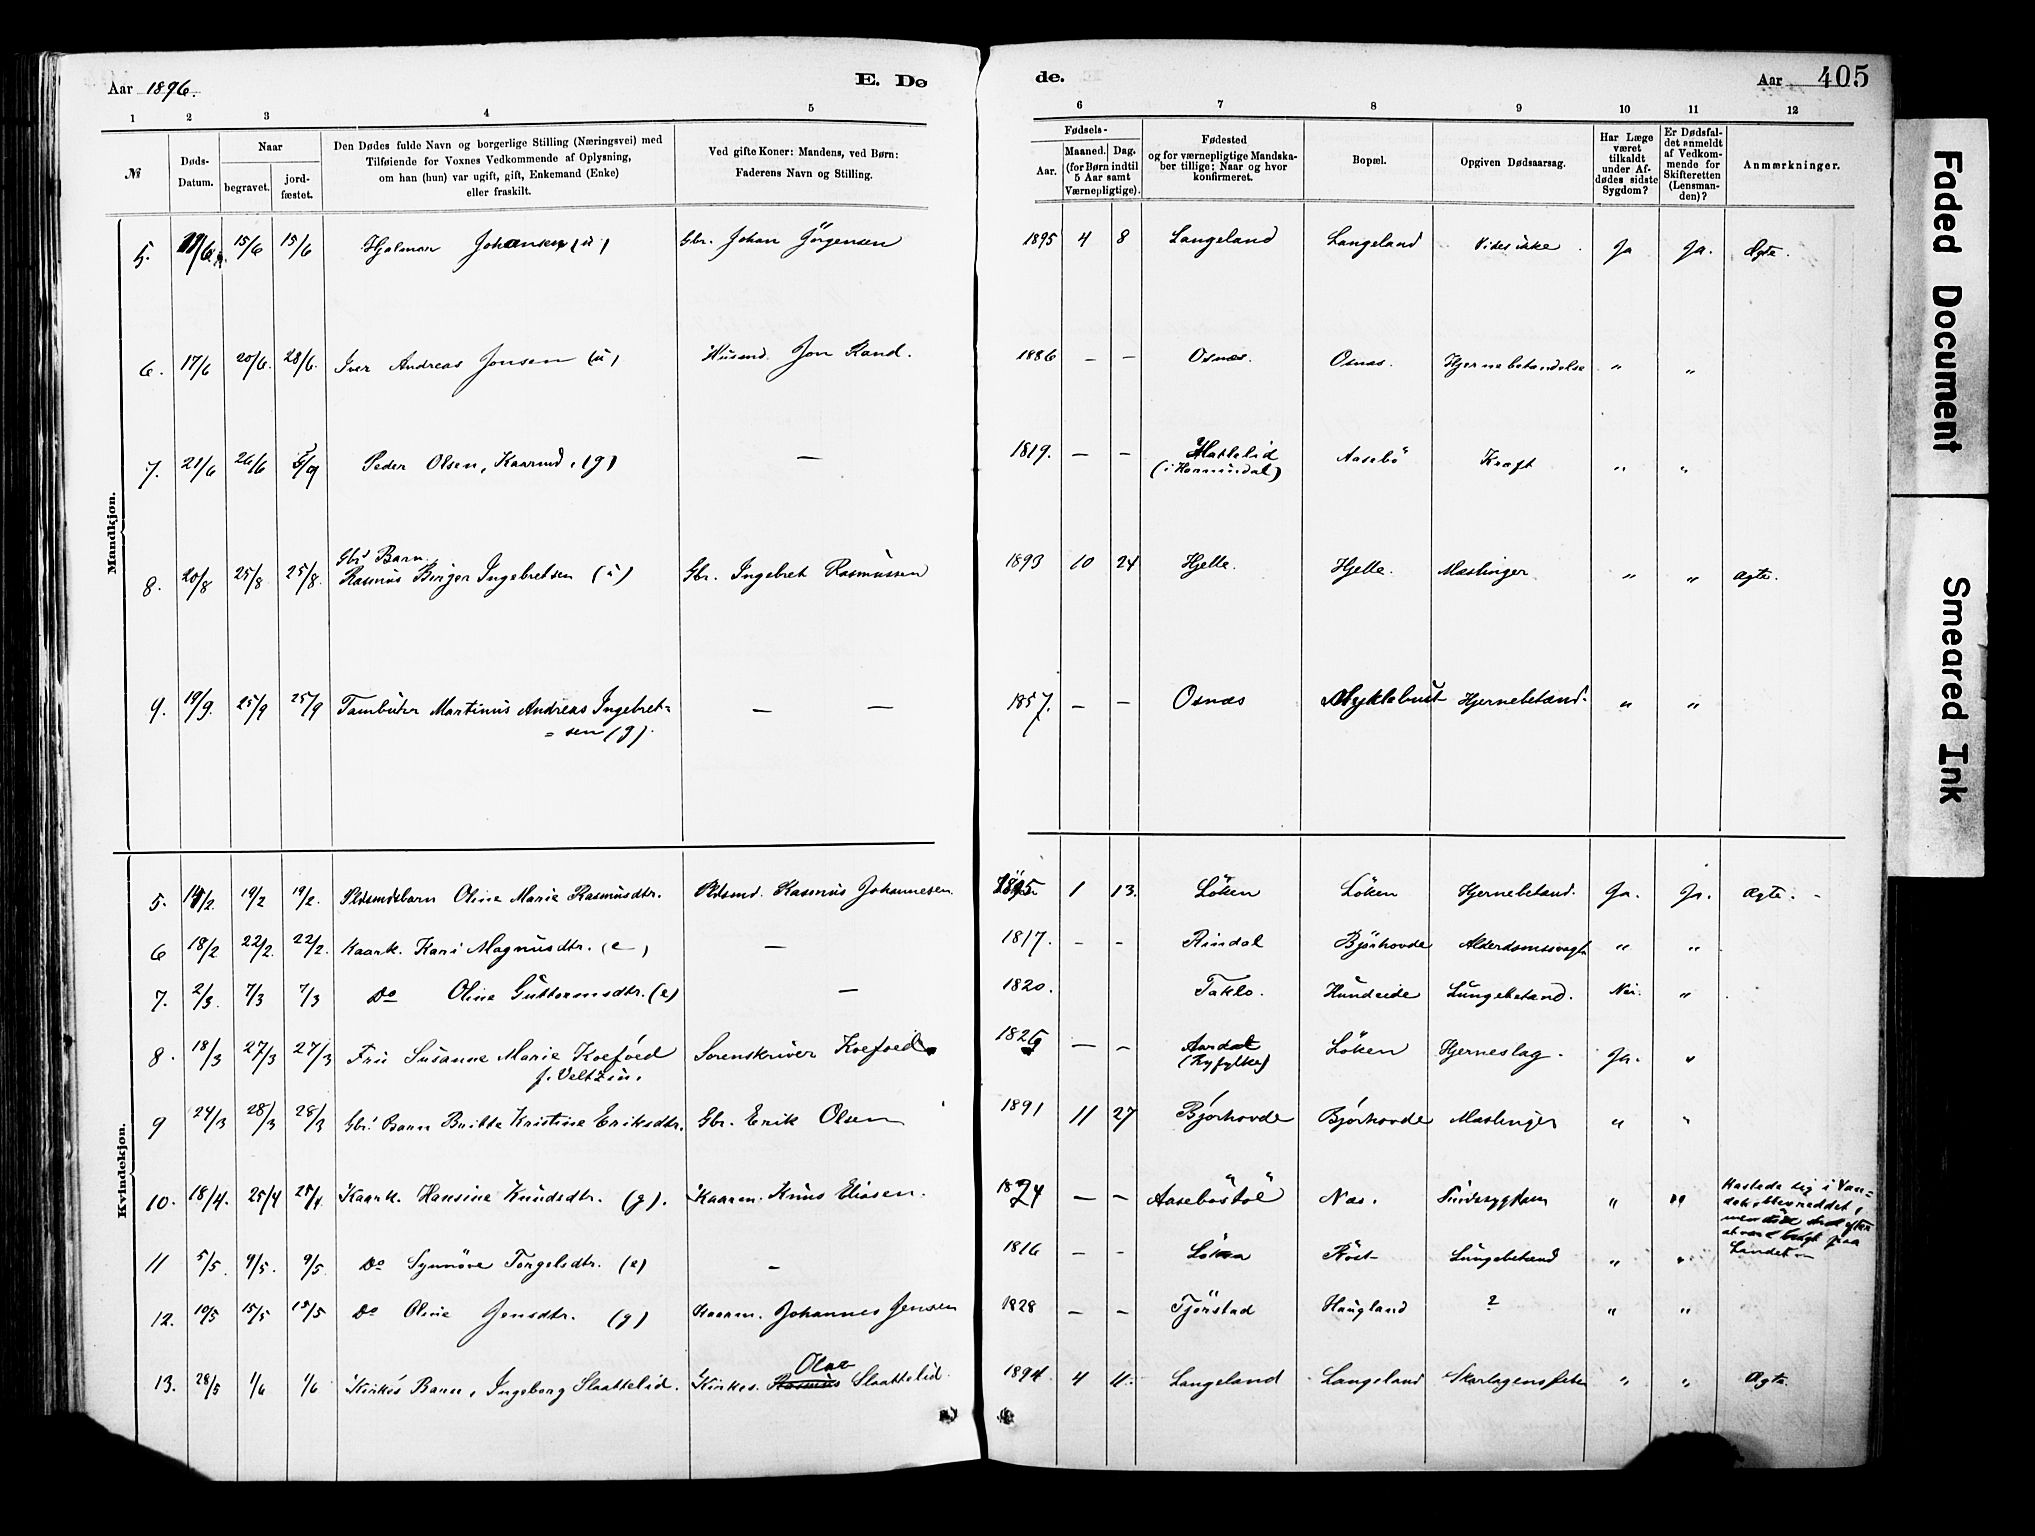 Aar 1896.
E. Dø
de.
Aar
405
1 2 3 4 5 6 7 8 9 10 11 12
№
Døds-
Datum.
Naar
begravet.
jord-
fæstet.
Den Dødes fulde Navn og borgerlige Stilling (Næringsvei) med
Tilføiende for Voxnes Vedkommende af Oplysning,
om han (hun) var ugift, gift, Enkemand (Enke)
eller fraskilt.
Ved gifte Koner: Mandens, ved Børn:
Faderens Navn og Stilling.
Fødsels-
Aar.
Maaned. Dag.
(for Børn indtil
5 Aar samt
Værnepligtige).
Fødested
og for værnepligtige Mandska-
ber tillige: Naar og hvor
konfirmeret.
Bopæl.
Opgiven Dødsaarsag.
Har Læge
været
tilkaldt
under Af-
dødes sidste
Sygdom?
Er Dødsfal-
det anmeldt
af Vedkom-
mende for
Skifteretten
(Lensman-
den)?
Anmærkninger.
Mandkjøn.
5. 15/6 15/6 Hjalmar Johansen (u) Gbr. Johan Jörgensen 1895 4 8 Langeland Langeland Vides ikke Ja Ja. Ægte.
6. 17/6 20/6. 28/6. Iver Andreas Jonsen (u) Husmd. Jon Rand. 1886 — — Osnæs. Osnæs. Hjernebetændelse „ „
7. 21/6 26/6 Peder Olsen, Kaarmd. (g) — 1819. — — Hattelid Aasebö Kræft „ „
(i Hornindal)
Gbr' Barn
8. 20/8 25/8 25/8. Rasmus Birger Ingebretsen (u) Gbr. Ingebret Rasmussen 1893 10 24 Hjelle. Hjelle. Mæslinger „ „ Ægte.
9. 19/9. 25/9 25/9 Tambuhr Martinus Andreas Ingebret=
= sen (g). — — 1857. — — Osnæs Myklebust Hjernebetænd. „ „
Kvindekjøn.
5. 19/2 19/2. Pldsmdsbarn Oline Marie Rasmusdtr. Pldsmd. Rasmus Johannesen. 1895 1 13. Löken Löken Hjernebetænd. Ja. Ja. Ægte.
6 18/2 22/2. 22/2. Kaark. Kari Magnusdtr. (e) — 1817. - - Rindal Bjørhovde Alderdomssvagh „ „
7. 2/3. 7/3 7/3 Do Oline Guttormsdtr. (e) — 1820. Taklo. Hundeide Lungebetænd. Nei. „
8. 18/3 27/3 27/3 Fru Susanne Marie Koefoed Sorenskriver Koefoed. — — Aardal Löken Hjerneslag. Ja. „
f. Veltzin. (Ryfylke)
9 24/3 28/3 28/3 Gbr' Barn Britte Kristine Eriksdtr. Gbr. Erik Olsen 1891 11 27 Bjørhovde Bjørhovde Mæslinger „ „
10. 18/4. 25/4 25/4 Kaark. Hansine Knudsdtr. (g). Kaarm. Knus Eliasen. 1824 — — Aasebøstöl Næs. Sindssygdom „ „ Kastede sig i Van=
det, blev reddet,
men döde strax efter
at være bragt paa
Landet.
11 5/5. 9/5. 9/5 Do Synnöve Torgelsdtr. (e) — 1816 — — Löken Röst Lungebetænd „ „
12. 10/5 15/5 15/5 Do Oline Jensdtr. (g) Kaarm. Johannes Jensen 1828 — — Tjörstad Haugland ? „ „
Olai
13. 28/5 1/6 1/6 Kirkes Barn, Ingeborg Slaattelid. Kirkes. Rasmus Slaattelid. 1894. 4 11. Langeland Langeland Skarlagensfeber „ „ Ægte.
Faded Document
Smeared Ink